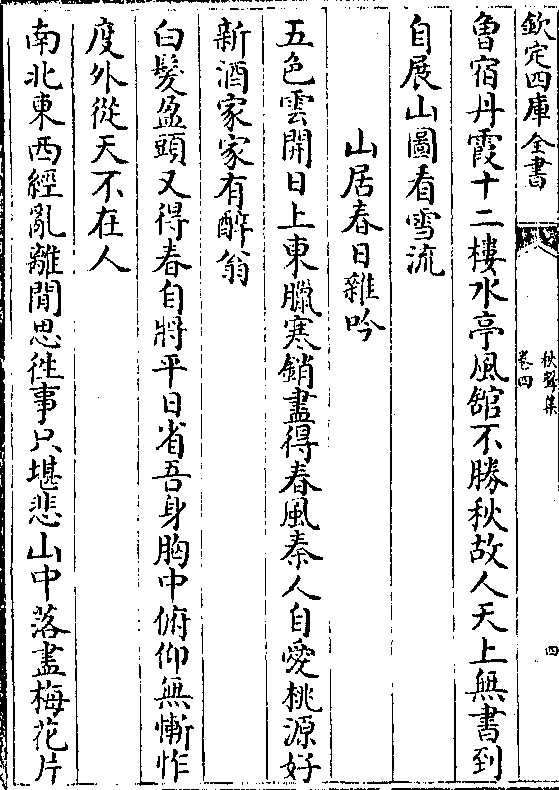 欽定四庫全書
秋聲集
卷四
四
曾宿丹霞十二樓水亭風館不勝秋故人天上無書到
自展山圖看雪流
山居春日雜吟
五色雲開日上東臘寒銷盡得春風秦人自愛桃源好
新酒家家有醉翁
白髮盈頭又得春自將平日省吾身胸中俯仰無慚怍
度外從天不在人
南北東西經亂離閒思徃事只堪悲山中落盡梅花片